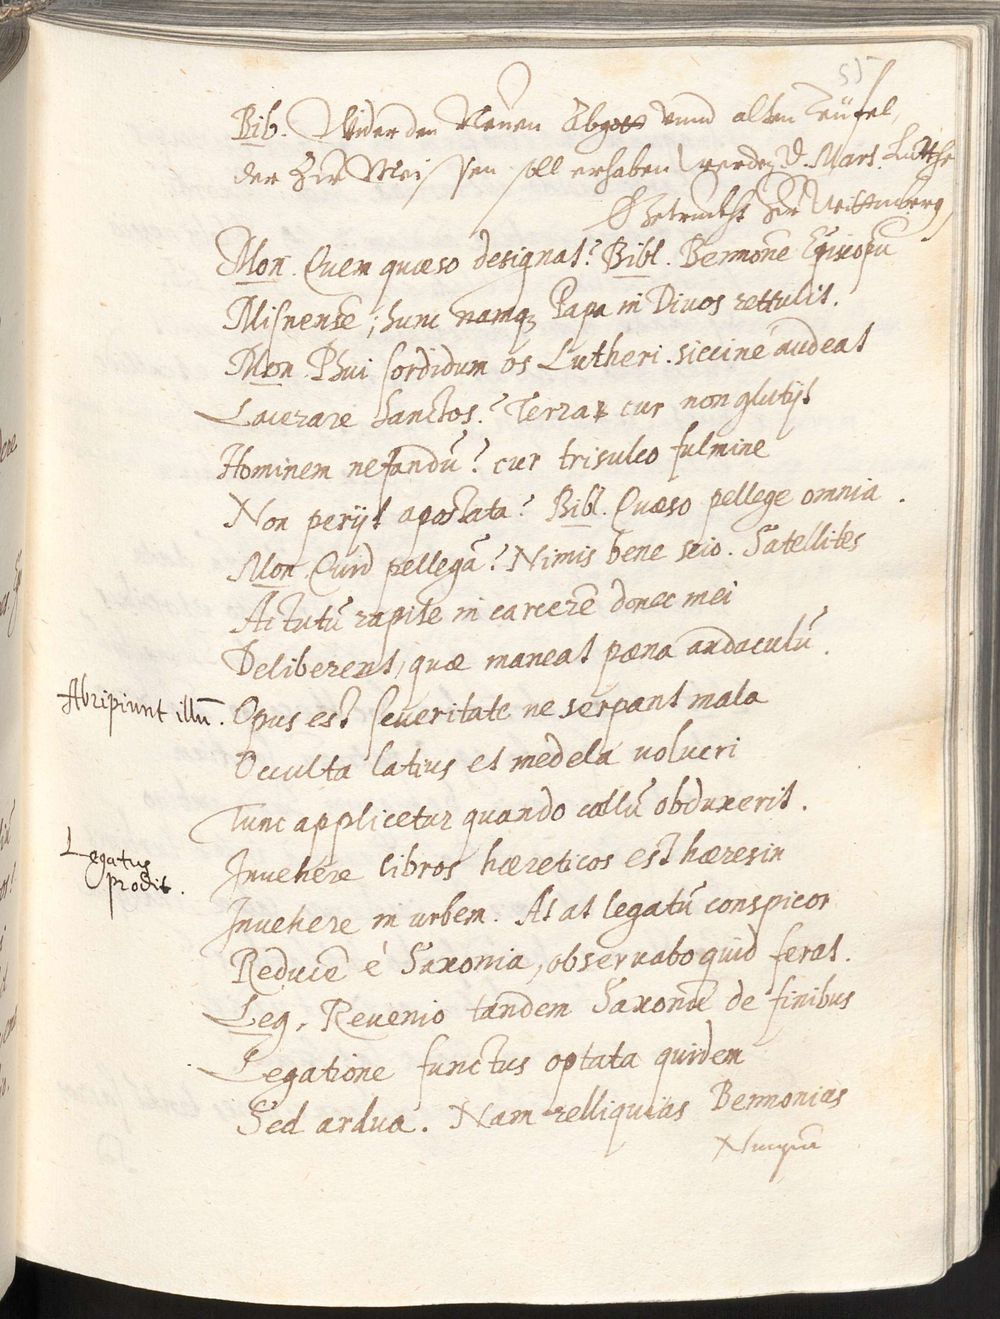 55
Bib. Wider den Newen Abgott vnnd alten Teüfel,
der Zu Meissen soll erhaben werdē D. Mart. Luther
Getruckht Zu Wittenberg
Mon. Quem quæso designat? Bibl. Bennonē Episcopū
Misnensē; hunc namq₃ Papa in Divos rettulit.
Mon. Phui sordidum os Lutheri. siccine audeat
Lacerare sanctos? Terra cur non glutijt
Hominem nefandū? cur trisulco fulmine
Non perijt apostata? Bibl. Quæso pellege omnia.
Mon. Quid pellegā? Nimis bene scio. Satellites
Actutū rapite in carcerē donec mei
Deliberent, quæ maneat pœna audaculū.
Abripiunt illū.
Opus est seueritate ne serpant mala
Occulta latius et medela uolucri
Tunc applicetur quando callū obduxerit.
Legatus
prodit.
Inuehere libros hæreticos est hæresin
Inuehere in urbem. At at legatū conspicor
Reducē è Saxonia, obseruabo quid ferat.
Leg. Reuenio tandem Saxonū de finibus
Legatione functus optata quidem
Sed ardua. Nam relliquias Bennonias
Nunquā